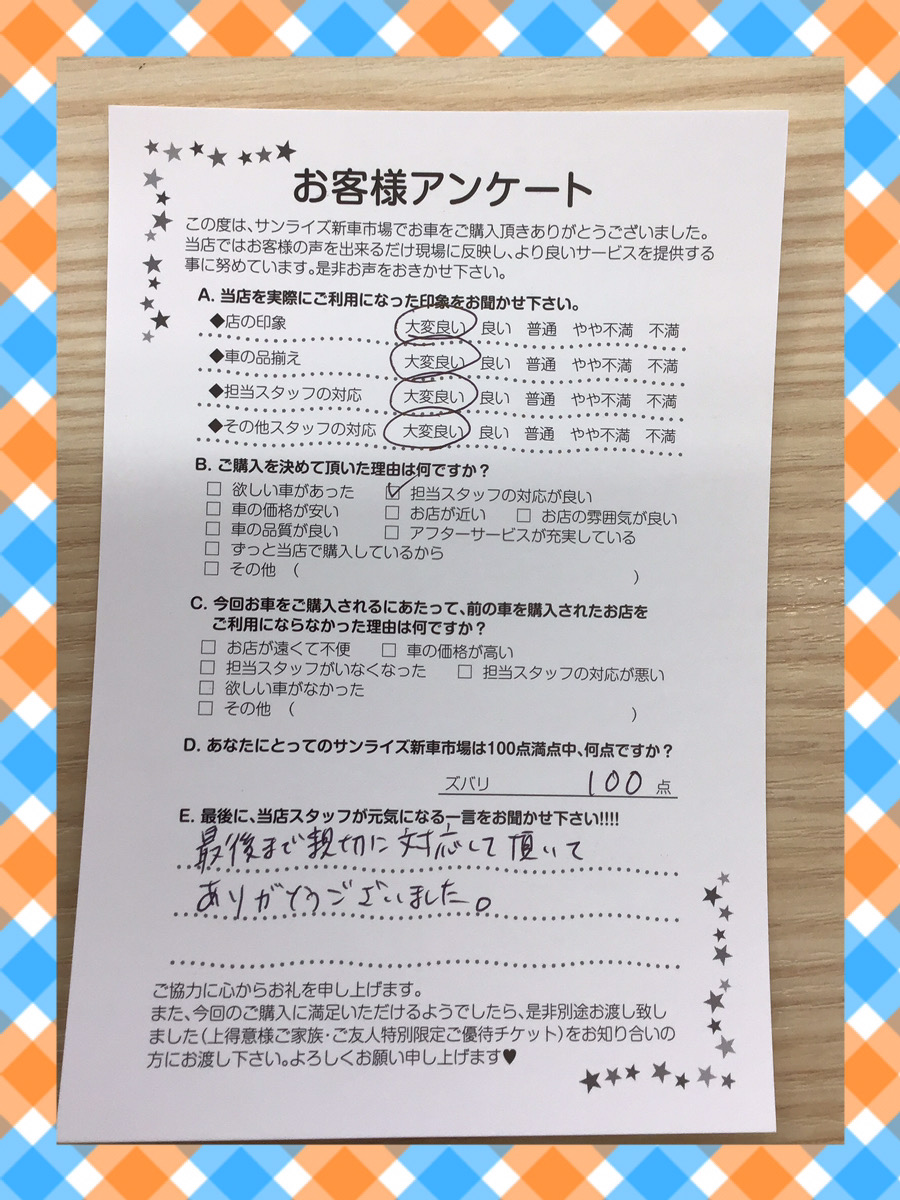 お客様アンケート
この度は、サンライズ新車市場でお車をご購入頂きありがとうございました。
当店ではお客様の声を出来るだけ現場に反映し、より良いサービスを提供する
事に努めています。是非お声をおきかせ下さい。
A. 当店を実際にご利用になった印象をお聞かせ下さい。
◆店の印象 大変良い 良い 普通 やや不満 不満
◆車の品揃え 大変良い 良い 普通 やや不満 不満
◆担当スタッフの対応 大変良い 良い 普通 やや不満 不満
◆その他スタッフの対応 大変良い 良い 普通 やや不満 不満
B. ご購入を決めて頂いた理由は何ですか？
□ 欲しい車があった ☑ 担当スタッフの対応が良い
□ 車の価格が安い □ お店が近い □ お店の雰囲気が良い
□ 車の品質が良い □ アフターサービスが充実している
□ ずっと当店で購入しているから
□ その他 （ ）
C. 今回お車をご購入されるにあたって、前の車を購入されたお店を
ご利用にならなかった理由は何ですか？
□ お店が遠くて不便 □ 車の価格が高い
□ 担当スタッフがいなくなった □ 担当スタッフの対応が悪い
□ 欲しい車がなかった
□ その他 （ ）
D. あなたにとってのサンライズ新車市場は100点満点中、何点ですか？
ズバリ 100 点
E. 最後に、当店スタッフが元気になる一言をお聞かせ下さい!!!!
最後まで親切に対応して頂いて
ありがとうございました。
ご協力に心からお礼を申し上げます。
また、今回のご購入に満足いただけるようでしたら、是非別途お渡し致し
ました（上得意様ご家族・ご友人特別限定ご優待チケット）をお知り合いの
方にお渡し下さい。よろしくお願い申し上げます♥